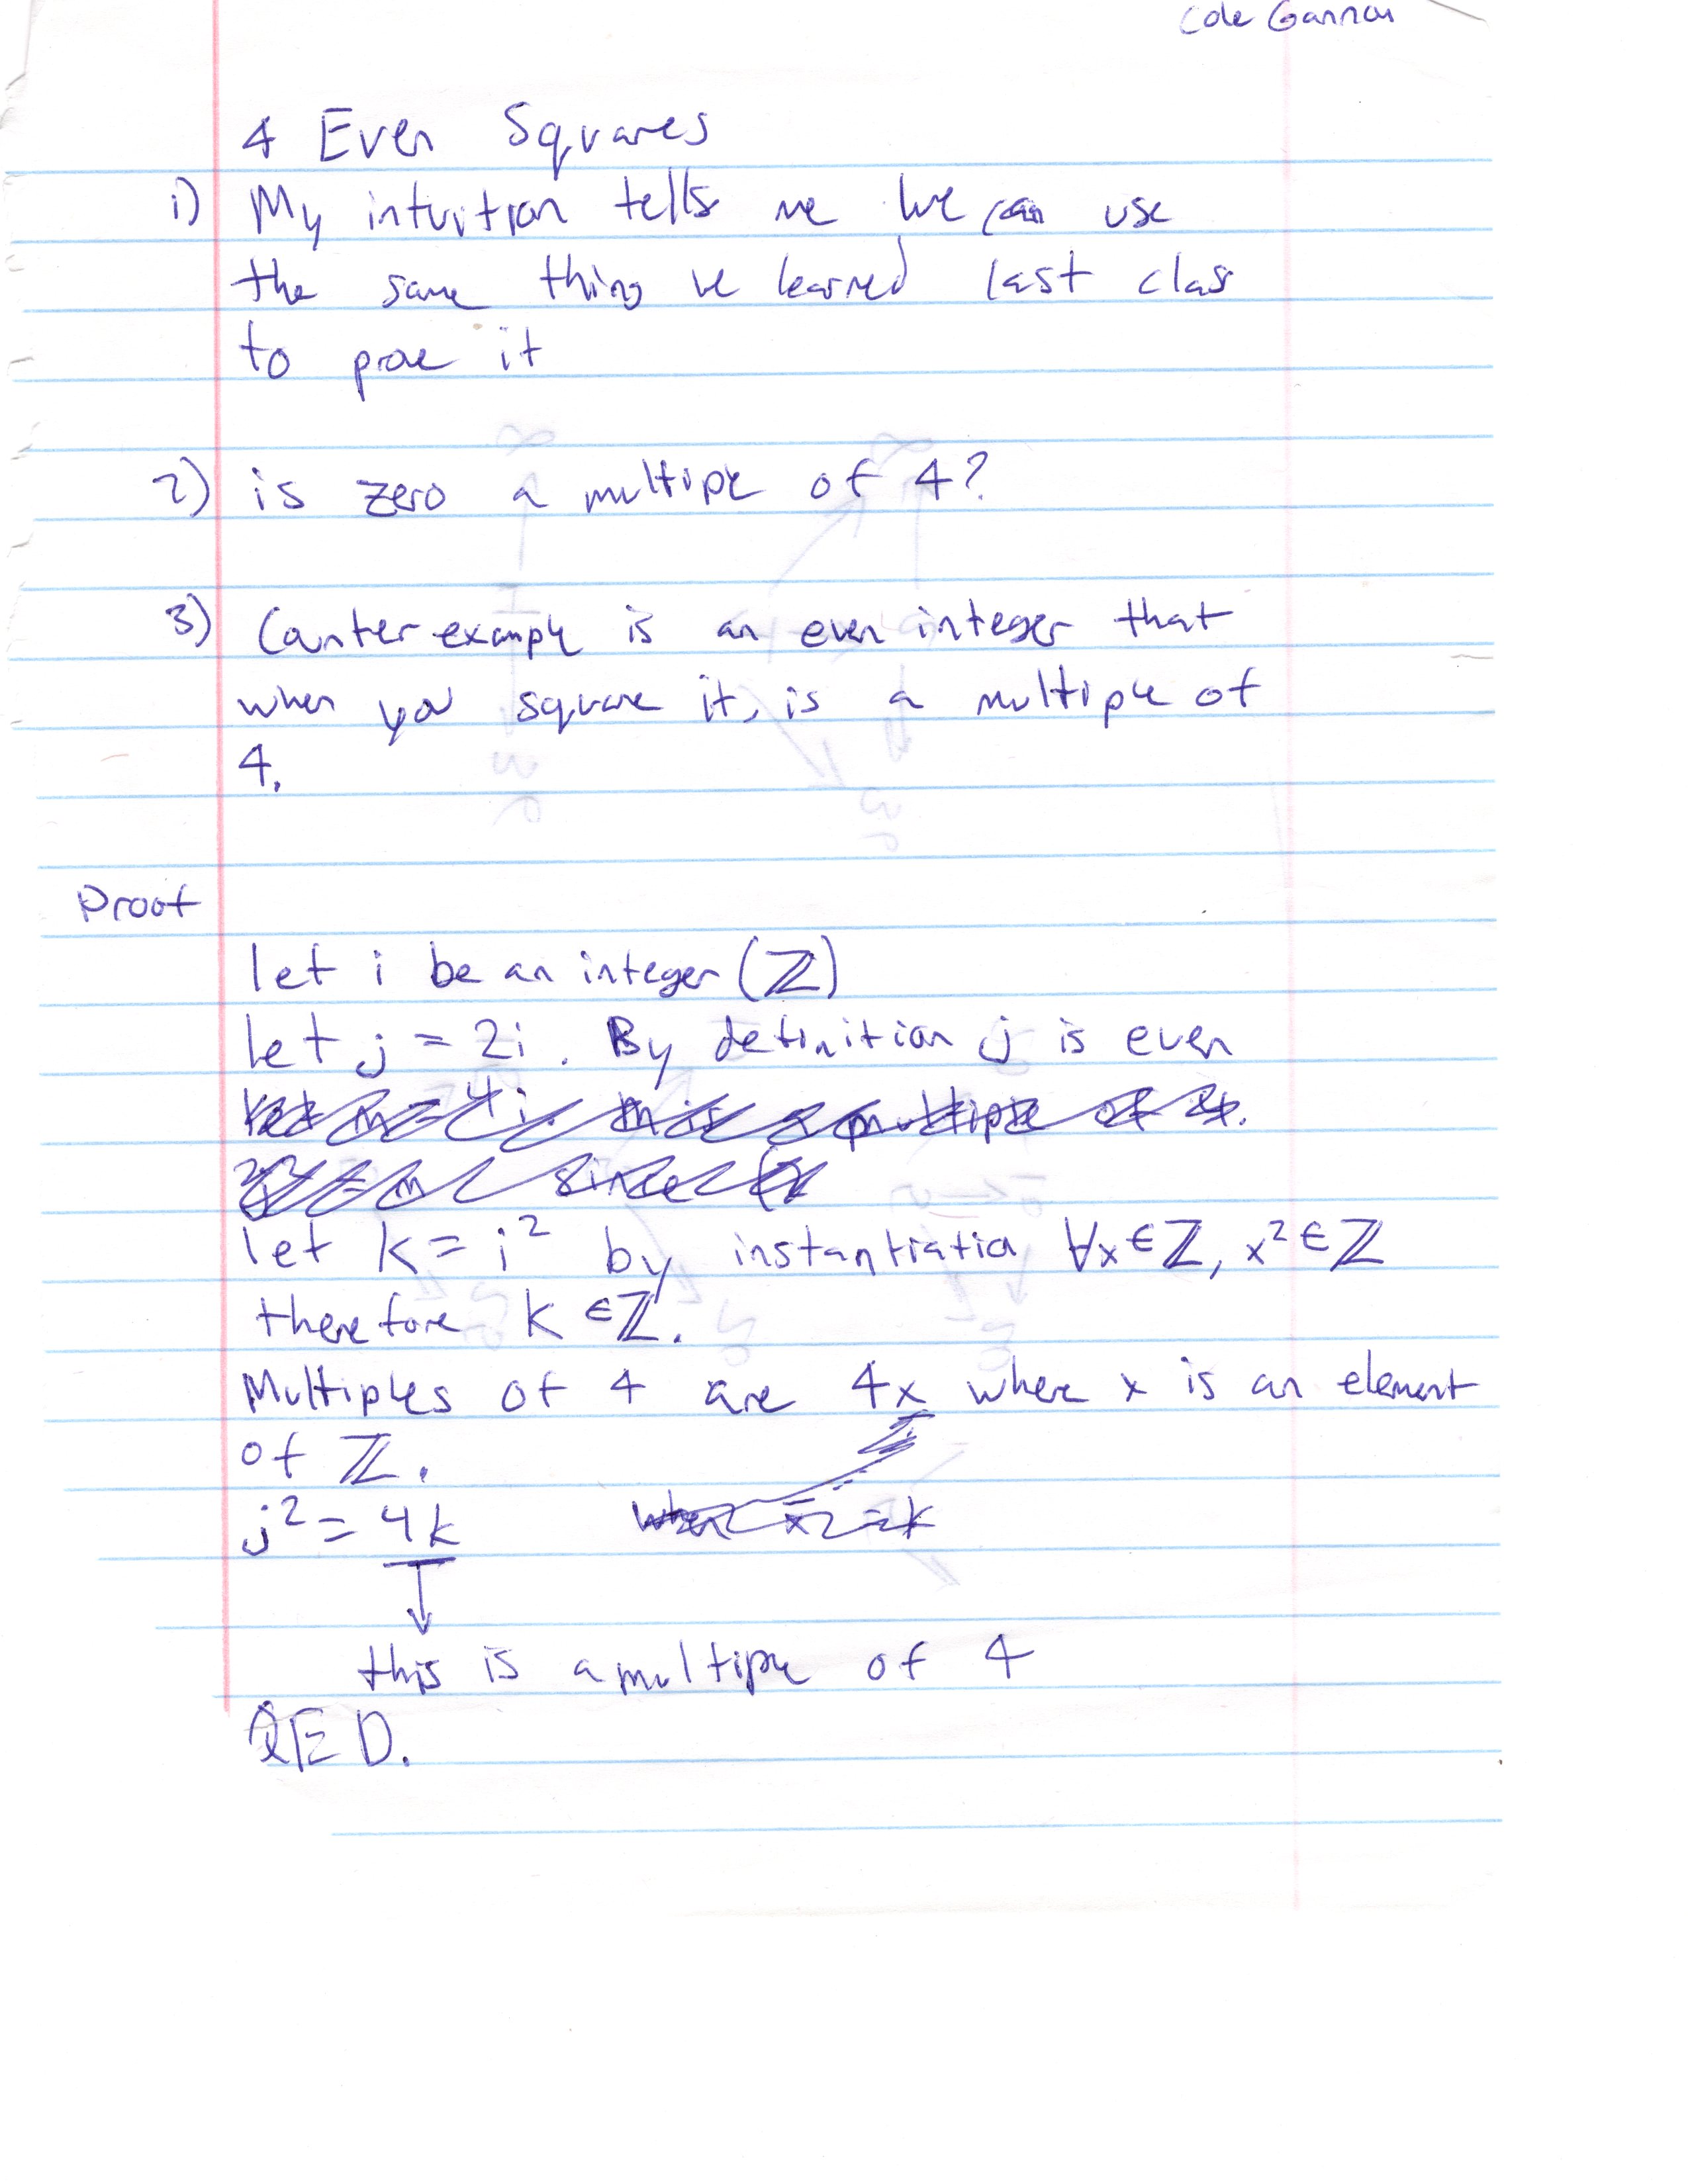 Cole Gannon
4 Even Squares
1) My intuition tells me we can use
the same thing we learned last class
to prove it
2) is zero a multiple of 4?
3) Counter example is an even integer that
when you square it, is a multiple of
4.
Proof
let i be an integer (ℤ)
let j = 2i. By definition j is even
let m = 4i. m is a multiple of 4.
since
let k = i² by instantiation ∀x∈ℤ, x²∈ℤ
therefore k ∈ℤ.
Multiples of 4 are 4x where x is an element
of ℤ.
j² = 4k where x = k
this is a multiple of 4
QED.